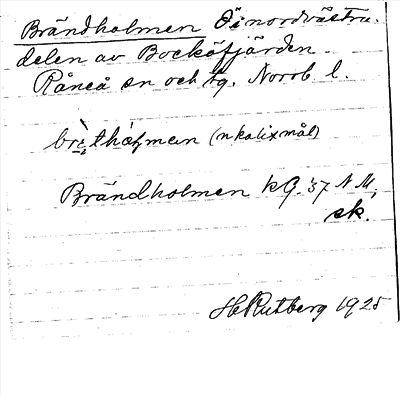 Brändholmen Ö i nordvästra
delen av Bocköfjärden.
Råneå sn och tg. Norrb. l.
(nkalixmål)
Brändholmen kG. '37 N M,
sk.
H Rutberg 1925